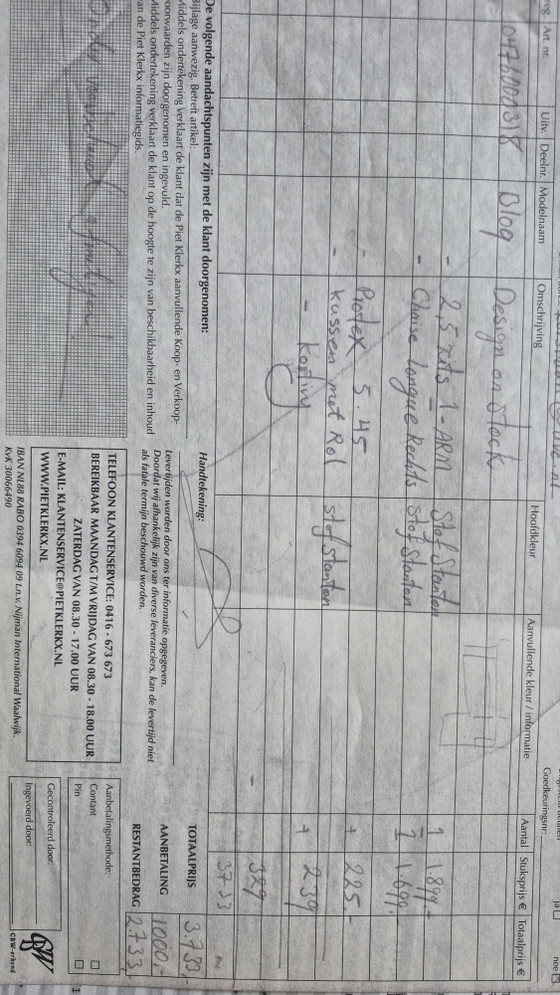 Art. nr. Uitv. Deelnr. Modelnaam Omschrijving Hoofdkleur Aanvullende kleur / informatie Aantal Stuksprijs € Totaalprijs €
Goedkeuringsnr.:
ja
nee
Blog Design on Stock
- 2,5 zits 1-ARM Stof Stanton 1 1.899,-
- Chaise Longue Rechts Stof Stanton 1 1.699,-
- Protex 5.45 + 225.
- kussen met Rol stof Stanton + 239
- Korting - 329
3733
De volgende aandachtspunten zijn met de klant doorgenomen:
Bijlage aanwezig. Betreft artikel:
Middels ondertekening verklaart de klant dat de Piet Klerkx aanvullende Koop- en Verkoop-
voorwaarden zijn doorgenomen en ingevuld.
Middels ondertekening verklaart de klant op de hoogte te zijn van beschikbaarheid en inhoud
van de Piet Klerkx informatiegids.
Handtekening:
Levertijden worden door ons ter informatie opgegeven.
Doordat wij afhankelijk zijn van diverse leveranciers, kan de levertijd niet
als fatale termijn beschouwd worden.
TOTAALPRIJS 3.733,-
AANBETALING 1000,-
RESTANTBEDRAG 2733,
TELEFOON KLANTENSERVICE: 0416 - 673 673
BEREIKBAAR MAANDAG T/M VRIJDAG VAN 08.30 - 18.00 UUR
ZATERDAG VAN 08.30 - 17.00 UUR
E-MAIL: KLANTENSERVICE@PIETKLERKX.NL
WWW.PIETKLERKX.NL
Aanbetalingsmethode:
Contant
Pin
IBAN NL88 RABO 0394 6094 09 t.n.v. Nijman International Waalwijk.
KvK 30066490
Gecontroleerd door:
Ingevoerd door:
CBW-erkend